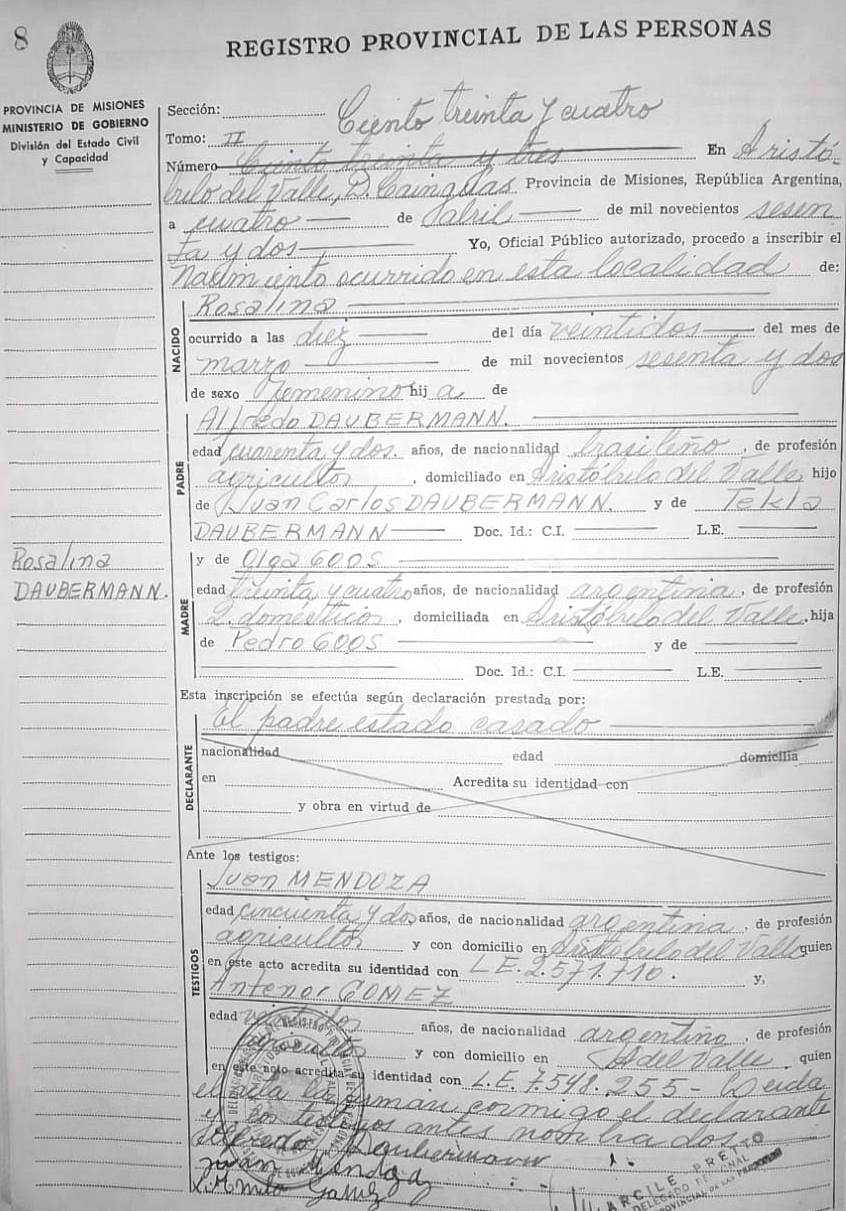 8
REGISTRO PROVINCIAL DE LAS PERSONAS
PROVINCIA DE MISIONES
MINISTERIO DE GOBIERNO
División del Estado Civil
y Capacidad
Sección: Ciento treinta y cuatro
Tomo: II
Número Ciento treinta y tres En Aristó-
bulo del Valle, D. Cainguas Provincia de Misiones, República Argentina,
a cuatro de abril de mil novecientos sesen
ta y dos Yo, Oficial Público autorizado, procedo a inscribir el
Nacimiento ocurrido en esta localidad de:
NACIDO
Rosalina
ocurrido a las diez del día veintidos del mes de
marzo de mil novecientos sesenta y dos
de sexo femenino hij a de
PADRE
Alfredo DAUBERMANN.
edad cuarenta y dos. años, de nacionalidad brasileño, de profesión
agricultor, domiciliado en Aristóbulo del Valle, hijo
de Juan Carlos DAUBERMANN. y de Tekla
DAUBERMANN Doc. Id.: C.I. L.E.
Rosalina
DAUBERMANN.
MADRE
y de Olga GOOS
edad treinta y cuatro años, de nacionalidad argentina, de profesión
q. domésticos, domiciliada en Aristóbulo del Valle, hija
de Pedro GOOS y de
Doc. Id.: C.I. L.E.
Esta inscripción se efectúa según declaración prestada por:
DECLARANTE
El padre estado casado
nacionalidad edad domicilia
en Acredita su identidad con
y obra en virtud de
Ante los testigos:
TESTIGOS
Juan MENDOZA
edad cincuenta y dos años, de nacionalidad argentina, de profesión
agricultor y con domicilio en Aristóbulo del Valle quien
en este acto acredita su identidad con L.E. 2.571.710. y,
Antenor GOMEZ
edad veintidos años, de nacionalidad argentino, de profesión
agricultor y con domicilio en A del Valle. quien
en este acto acredita su identidad con L.E. 7.548.255 - Leida
el acta la firman conmigo el declarante
y los testigos antes nombrados
Alfredo Daubermann
Juan Mendoza
ARCILE PRETTO
DELEGADO REGIONAL
PROVINCIAL DE LAS PERSONAS